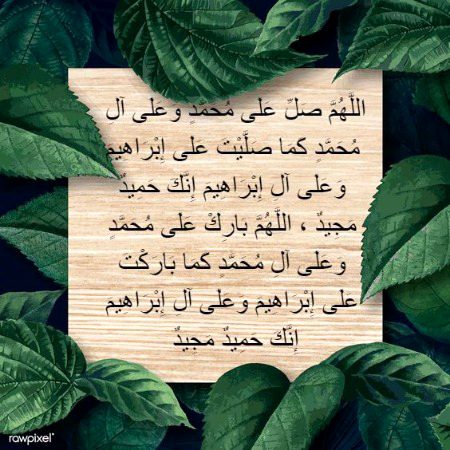 اللَّهُمَّ صلِّ عَلى مُحمَّدٍ وَعَلى آل
مُحمَّدٍ كَما صَلَّيْتَ عَلى إِبْرَاهيم
وَعَلى آلِ إِبْرَاهِيمَ إِنَّكَ حَمِيدٌ
مَجِيدٌ ، اللَّهُمَّ بارِكْ عَلى مُحمَّدٍ
وعَلى آل مُحمَّدٍ كما بَارَكْتَ
عَلَى إِبْرَاهِيمَ وَعَلَى آل إِبْراهيم
إِنَّكَ حَمِيدٌ مَجِيدٌ
rawpixel